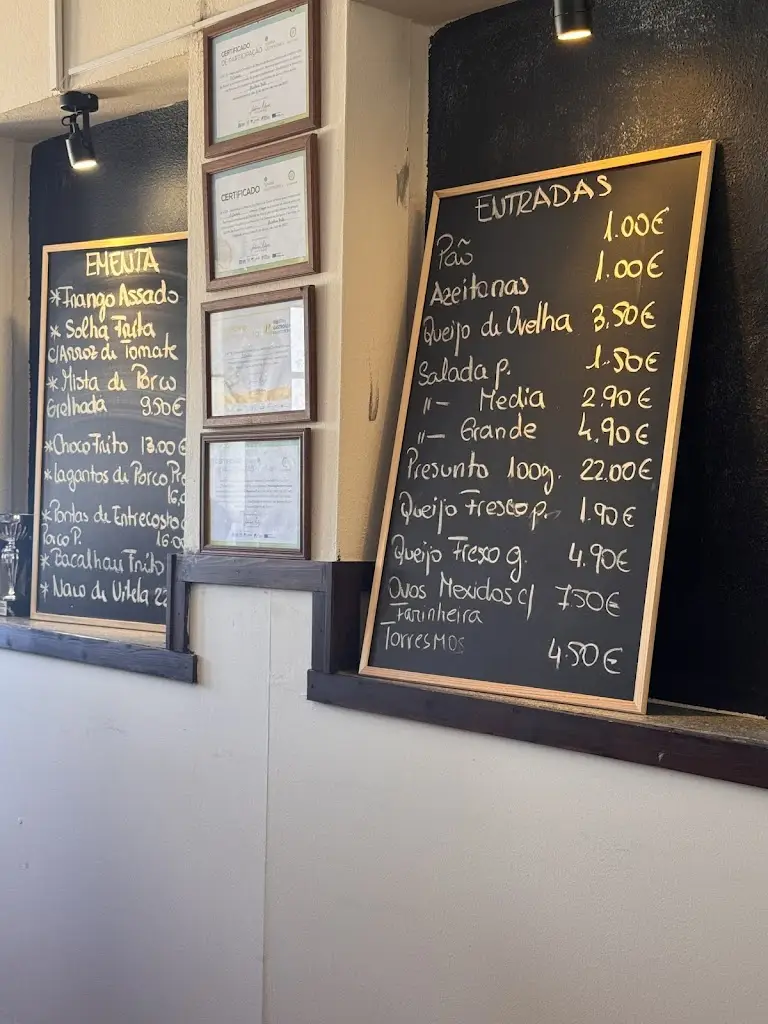 EMENTA
*Frango Assado
* Solha Frita
c/Arroz de Tomate
* Mista de Porco
Grelhada 9.50€
*Choco Frito 13.00€
*Lagartos de Porco Pr
16,0
*Pontas de Entrecosto
Porco P. 16.00
*Bacalhau Frito
* Naco de Vitela 22
CERTIFICADO
DE PARTICIPAÇÃO
CERTIFICADO
ENTRADAS
Pão 1.00€
Azeitonas 1.00€
Queijo de Ovelha 3.50€
Salada p. 1.50€
"- Media 2.90€
"- Grande 4.90€
Presunto 100g. 22.00€
Queijo Fresco p. 1.90€
Queijo Fresco g. 4.90€
Ovos Mexidos c/ 7.50€
Farinheira
Torresmos 4.50€